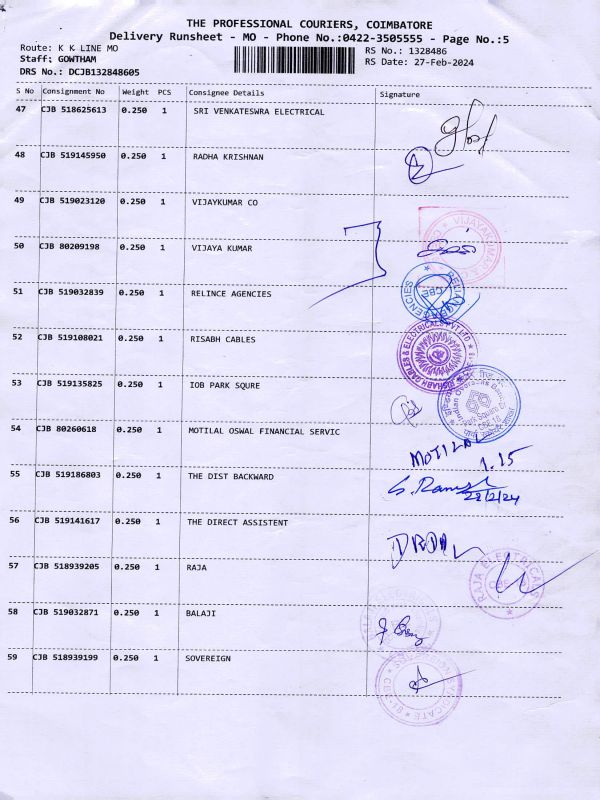 THE PROFESSIONAL COURIERS, COIMBATORE
Delivery Runsheet - MO - Phone No.:0422-3505555 - Page No.:5
Route: K K LINE MO
RS No.: 1328486
Staff: GOWTHAM
RS Date: 27-Feb-2024
DRS No.: DCJB132848605
S No Consignment No Weight PCS Consignee Details Signature
47 CJB 518625613 0.250 1 SRI VENKATESWRA ELECTRICAL
48 CJB 519145950 0.250 1 RADHA KRISHNAN
49 CJB 519023120 0.250 1 VIJAYKUMAR CO
50 CJB 80209198 0.250 1 VIJAYA KUMAR
51 CJB 519032839 0.250 1 RELINCE AGENCIES
52 CJB 519108021 0.250 1 RISABH CABLES
53 CJB 519135825 0.250 1 IOB PARK SQURE
54 CJB 80260618 0.250 1 MOTILAL OSWAL FINANCIAL SERVIC
MOTILAL
1.15
55 CJB 519186803 0.250 1 THE DIST BACKWARD
S. Ramesh
28/2/24
56 CJB 519141617 0.250 1 THE DIRECT ASSISTENT
57 CJB 518939205 0.250 1 RAJA
RAJA ELECTRICALS
58 CJB 519032871 0.250 1 BALAJI
59 CJB 518939199 0.250 1 SOVEREIGN